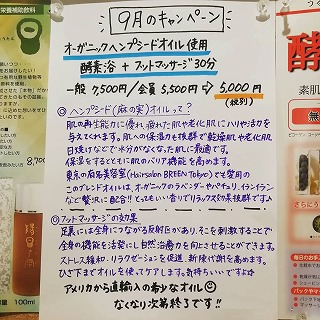 9月のキャンペーン
オーガニックヘンプシードオイル使用
酵素浴 + フットマッサージ30分
一般 7,500円/会員 5,500円 → 5,000円
(税別)
◎ヘンプシード(麻の実)オイルって?
肌の再生能力に優れ、疲れた肌や老化肌にハリやはりを
与えてくれます。肌への保湿力も抜群で乾燥肌や老化肌
日焼けなどで水分がなくなった肌に最適です。
保湿をするとともに肌のバリア機能を高めます。
東京の麻美容室(Hairsalon BREEN Tokyo)でも愛用の
このブレンドオイルは、オーガニックのラベンダーやパチュリ、イランイラン
など贅沢に配合!!とってもいい香りでリラックス効果抜群です♪
◎フットマッサージの効果
足裏には全身につながる反射区があり、そこを刺激することで
全身の機能を活発にし自然治癒力を向上させることができます。
ストレス緩和・リラクゼーションを促進、新陳代謝を高めます。
ひざ下までオイルを使ってケアします。気持ちいいですよ☆
アメリカから直輸入の希少なオイル
なくなり次第終了です!!
栄養補助飲料
8,700
100ml
酵
素肌
無
毎日のお手入
パックやマッサ